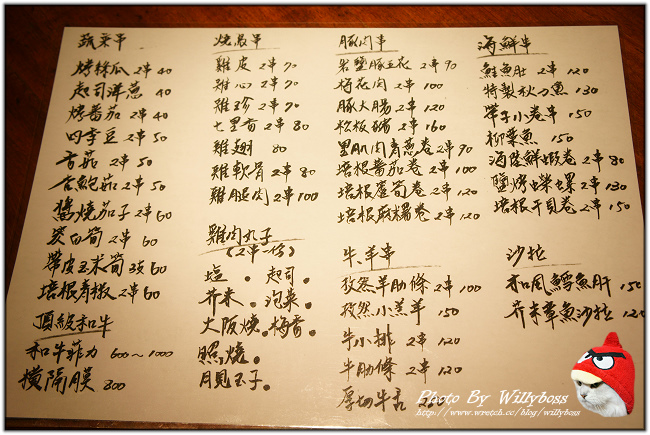 蔬菜串
烤絲瓜 2串 40
起司洋蔥 40
烤番茄 2串 40
四季豆 2串 50
香菇 2串 50
杏鮑菇 2串 50
醬燒茄子 2串 60
茭白筍 2串 60
帶皮玉米筍 3支 60
培根青椒 2串 60
頂級和牛
和牛菲力 600~1000
橫隔膜 800
燒鳥串
雞皮 2串 70
雞心 2串 70
雞珍 2串 70
七里香 2串 80
雞翅 80
雞軟骨 2串 80
雞腿肉 2串 100
雞肉丸子
(2串一份)
塩。起司。
芥末。泡菜。
大阪燒。梅香。
照燒。
月見玉子。
豚肉串
岩鹽豚五花 2串 90
梅花肉 2串 100
豚大腸 2串 120
松板豬 2串 160
里肌肉青蔥卷 2串 90
培根番茄卷 2串 100
培根蘆筍卷 2串 120
培根麻糬卷 2串 120
牛、羊串
孜然羊肋條 2串 100
孜然小羔羊 150
牛小排 2串 120
牛肋條 2串 120
厚切牛舌
海鮮串
鮭魚肚 2串 120
特製秋刀魚 130
帶子小卷串 150
柳葉魚 150
海苔鮮蝦卷 2串 80
鹽烤蠑螺 2串 130
培根干貝卷 2串 150
沙拉
和風鱈魚肝 150
芥末章魚沙拉 120
Photo By Willyboss
http://www.wretch.cc/blog/willyboss